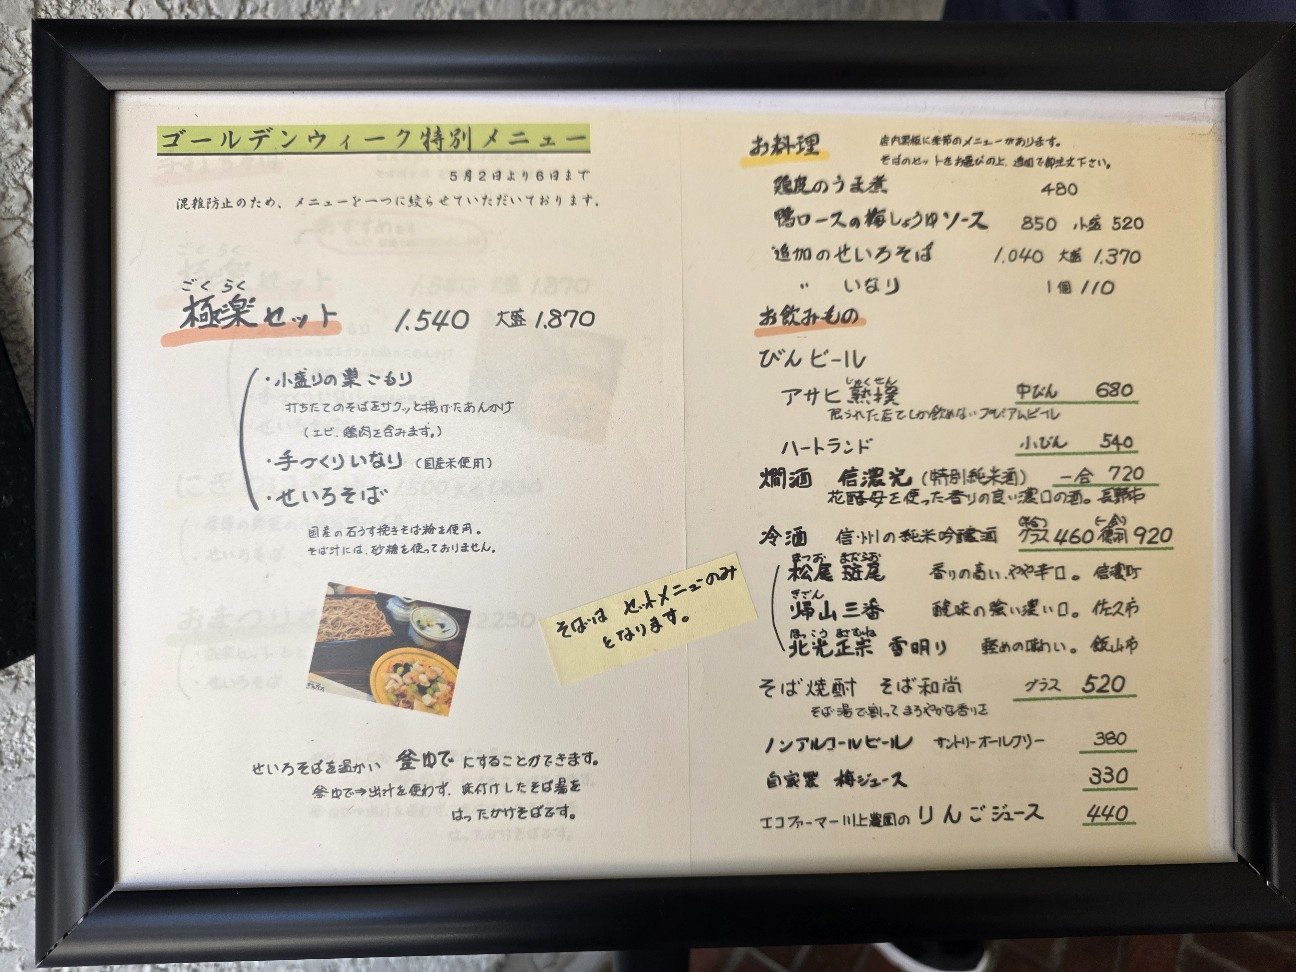 ゴールデンウィーク特別メニュー
5月2日より6日まで
混雑防止のため、メニューを一つに絞らせていただいております。
ごくらく
極楽セット 1.540 大盛 1.870
・小盛りの巣ごもり
打ちたてのそばをサクッと揚げたあんかけ
(エビ、鶏肉を含みます。)
・手づくりいなり (国産米使用)
・せいろそば
国産の石うす挽きそば粉を使用。
そば汁には、砂糖を使っておりません。
そばは セットメニューのみ
となります。
せいろそばを温かい 釜ゆで にすることができます。
釜ゆで→出汁を使わず、味付けしたそば湯を
はったかけそばです。
お料理
店内黒板に季節のメニューがあります。
そばのセットをお選びの上、追加で御注文下さい。
鶏皮のうま煮 480
鴨ロースの梅しょうゆソース 850 小盛 520
追加のせいろそば 1.040 大盛 1.370
〃 いなり 1個 110
お飲みもの
びんビール
じゅくせん
アサヒ 熟撰 中びん 680
限られた店でしか飲めないプレミアムビール
ハートランド 小びん 540
燗酒 信濃光 (特別純米酒) 一合 720
花酵母を使った香りの良い濃口の酒。長野市
冷酒 信州の純米吟醸酒 グラス 460 徳利 920
まつお まだらお
松尾 斑尾 香りの高い、やや辛口。信濃町
きざん
帰山 三番 酸味の強い濃い口。佐久市
ほっこう まさむね
北光正宗 雪明り 軽めの味わい。飯山市
そば焼酎 そば和尚 グラス 520
そば湯で割ってまろやかな香りを
ノンアルコールビール サントリーオールフリー 380
自家製 梅ジュース 330
エコファーマー川上農園の りんごジュース 440